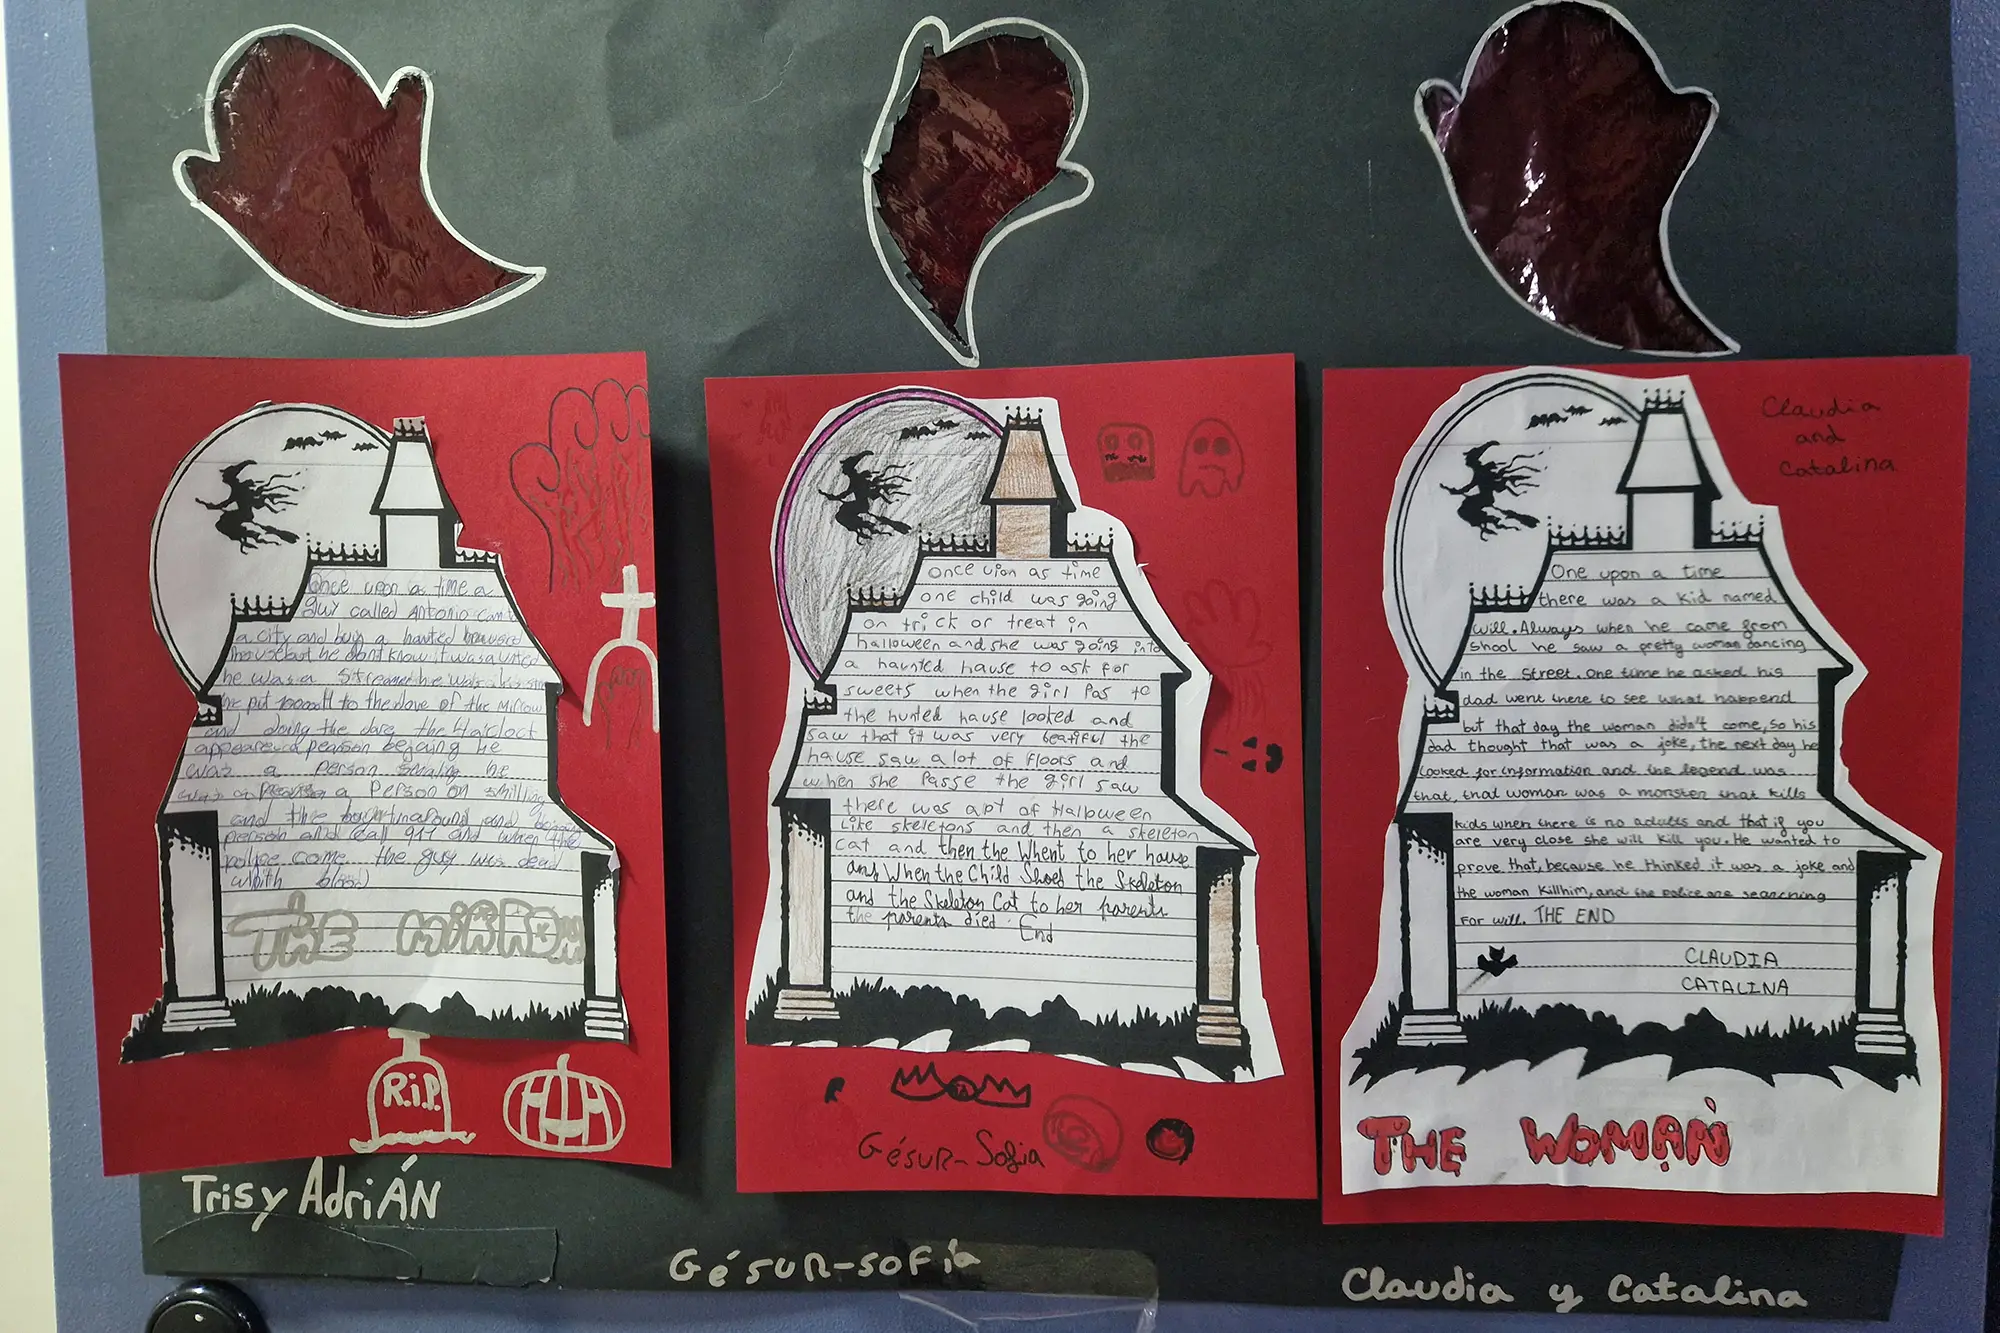 Once upon a time a
guy called Antonio
a city and buy a hanted
house but he dont know it was
he was a Streamer he was
he put to the of the Mirrow
and doing the dare the
appeare a pearson
was a person he
was a a Person on smilling
and the
person and call 911 and when the
police come the guy was dead
whith blood
THE MiRROW
R.i.P.
Tris y AdriÁN
Once upon as time
one child was going
on trick or treat in
halloween and she was going into
a haunted hause to ask for
sweets when the girl pas to
the hunted hause looked and
saw that it was very beatiful the
hause saw a lot of floors and
when she Passe the girl saw
there was a pt of Halloween
like skeletons and then a skeleton
cat and then the Whent to her hause
and When the Child Shoed the Skeleton
and the Skeleton Cat to her parents
the parents died. End
GésuR-Sofia
GésuR-sofía
Claudia
and
Catalina
One upon a time
there was a kid named
will. Always when he came from
shool he saw a pretty woman dancing
in the street. one time he asked his
dad went there to see what happend
but that day the woman didn't come, so his
dad thought that was a joke, the next day he
looked for information and the legend was
that, that woman was a monster that kills
kids when there is no adults and that if you
are very close she will kill you. He wanted to
prove that, because he thinked it was a joke and
the woman killhim, and the police are searching
For will. THE END
CLAUDIA
CATALINA
THE WOMAN
Claudia y Catalina